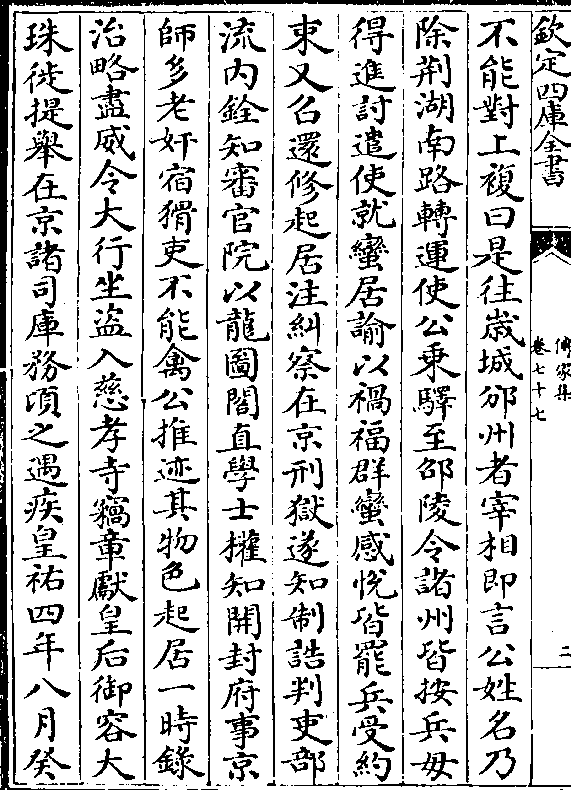 欽定四庫全書
傳家集
卷七十七
二
不能對上複曰是往歲城邠州者宰相即言公姓名乃
除荆湖南路轉運使公乘驛至邵陵令諸州皆按兵毋
得進討遣使就蠻居諭以禍福群蠻感悅皆罷兵受約
束又召還修起居注糾察在京刑獄遂知制誥判吏部
流内銓知審官院以龍圖閣直學士權知開封府事京
師多老奸宿猾吏不能禽公推迹其物色起居一時錄
治略盡威令大行坐盗入慈孝寺竊章獻皇后御容大
珠徙提舉在京諸司庫務頃之遇疾皇祐四年八月癸